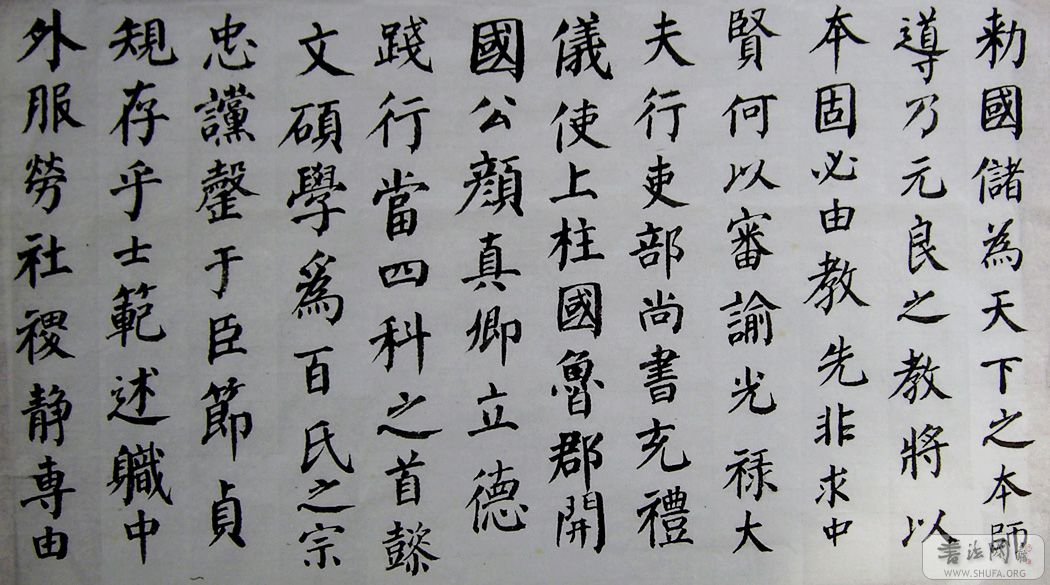 勅國儲為天下之本師
導乃元良之教將以
本固必由教先非求中
賢何以審諭光禄大
夫行吏部尚書充禮
儀使上柱國魯郡開
國公顏真卿立德
踐行當四科之首懿
文碩學爲百氏之宗
忠讜罄于臣節貞
規存乎士範述軄中
外服勞社稷静專由
WWW.SHUFA.ORG